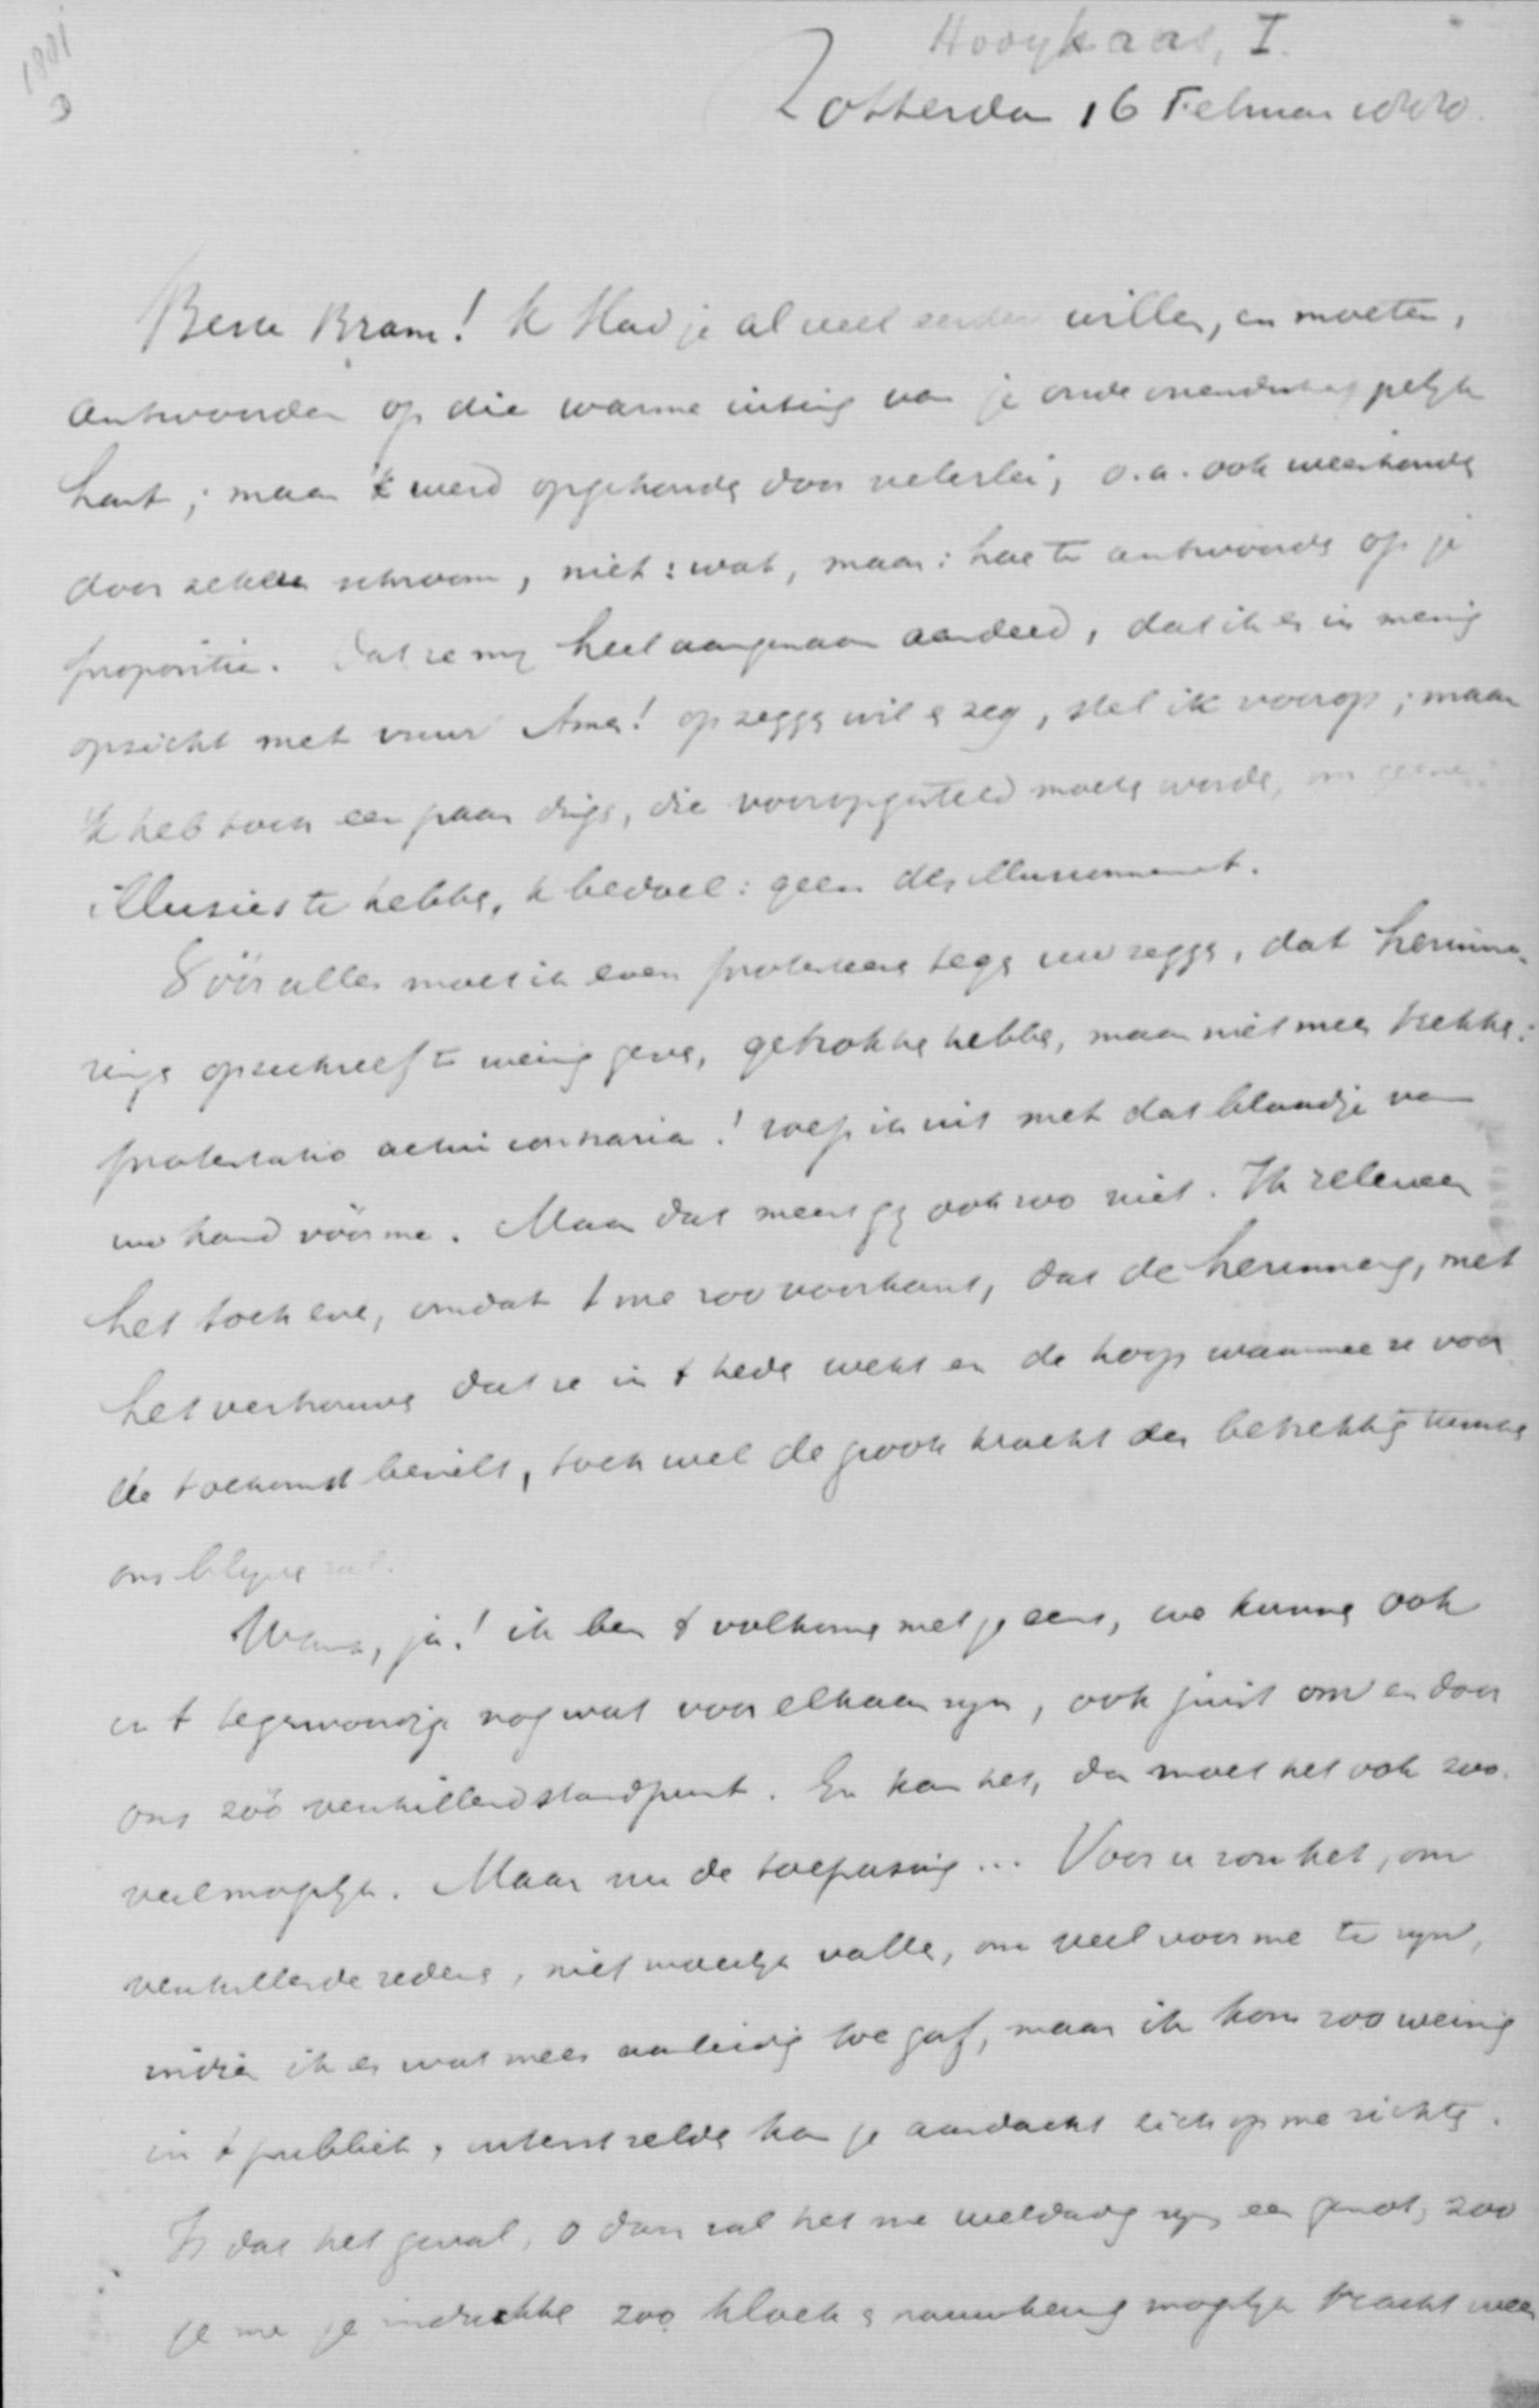 1881
Hooykaas, I.
Rotterdam 16 Februari 1880.
Beste Bram! Ik Had je al veel eerder willen, en moeten,
antwoorden op die warme uiting van je oude vriendschappelijke
hart; maar 'k werd opgehouden door velerlei, o.a. ook weerhouden
door zekere schroom, niet: wat, maar: hoe te antwoorden op je
propositie. Dat ze mij heel aangenaam aandeed, dat ik er in menig
opzicht met vuur Amen! op zeggen wil en zeg, stel ik voorop; maar
'k heb toch een paar dingen, die vooropgesteld moeten worden, om geene
illusies te hebben, 'k bedoel: geen desillusionnement.
Vóór alles moet ik even protesteeren tegen uw zeggen, dat herinne-
ringen opzichzelf te weinig geven, getrokken hebben, maar niet meer trekken:
protestatio actui contraria! roep ik uit met dat blaadje van
uw hand vóór me. Maar dat meent gij ook zoo niet. Ik releveer
het toch even, omdat 't me zoo voorkomt, dat de herinnering, met
het vertrouwen dat ze in 't heden wekt en de hoop waarmee ze voor
de toekomst bezielt, toch wel de groote kracht der betrekking tusschen
ons blijven zal.
Want, ja! ik ben 't volkomen met je eens, we kunnen ook
in 't tegenwoordige nog wat voor elkaar zijn, ook juist om en door
ons zóó verschillend standpunt. En kan het, dan moet het ook zoo
veel mogelijk. Maar nu de toepassing... Voor u zou het, om
verschillende redenen, niet moeilijk vallen, om veel voor me te zijn,
indien ik er wat meer aanleiding toe gaf, maar ik kom zoo weinig
in 't publiek, uiterst zelden kan je aandacht zich op me richten.
Is dat het geval, o dan zal het me weldadig zijn, een genot, zoo
je me je indrukken zoo kloek en nauwkeurig mogelijk tracht weer